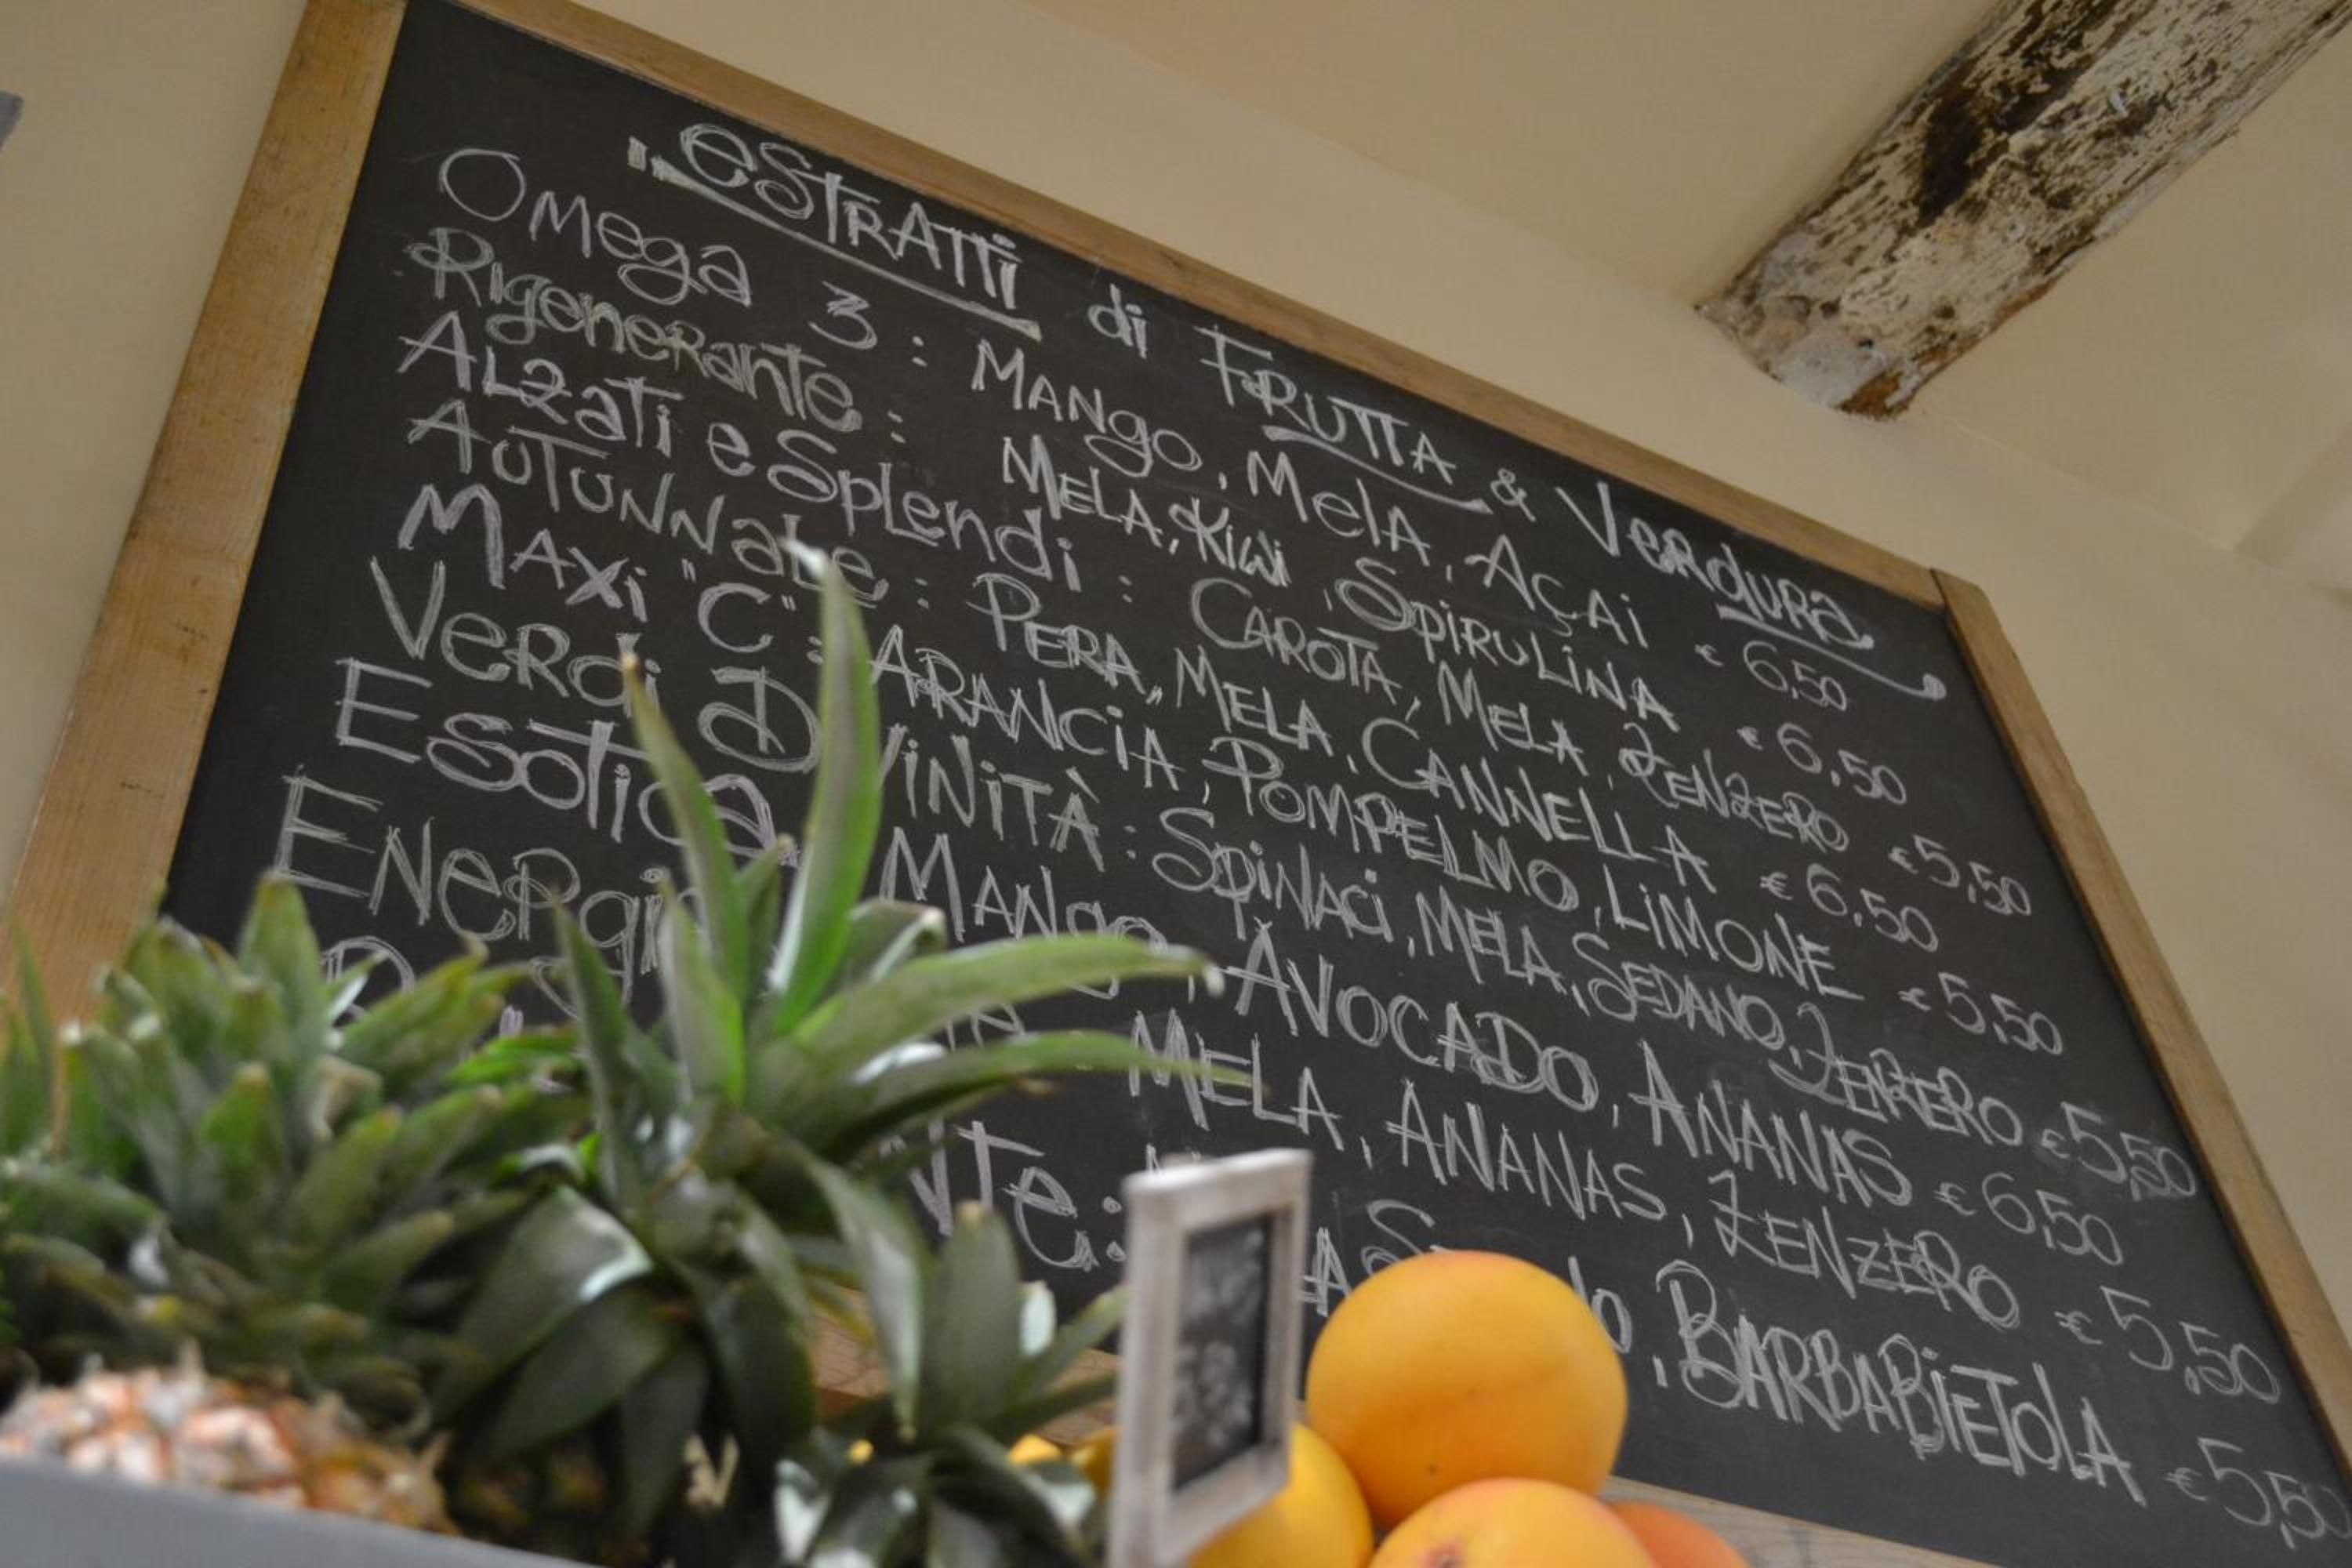 estratti di Frutta & Verdura
Omega 3 : Mango, Mela, Açai € 6,50
Rigenerante : Mela, Kiwi, Spirulina € 6,50
Alzati e Splendi : Carota, Mela, Zenzero € 5,50
Autunnale : Pera, Mela, Cannella € 6,50
Maxi "C" : Arancia, Pompelmo, Limone € 5,50
Verdi Divinità : Spinaci, Mela, Sedano, Zenzero € 5,50
Esotica Mango, Avocado, Ananas € 6,50
Mela, Ananas, Zenzero € 5,50
Barbabietola € 5,50